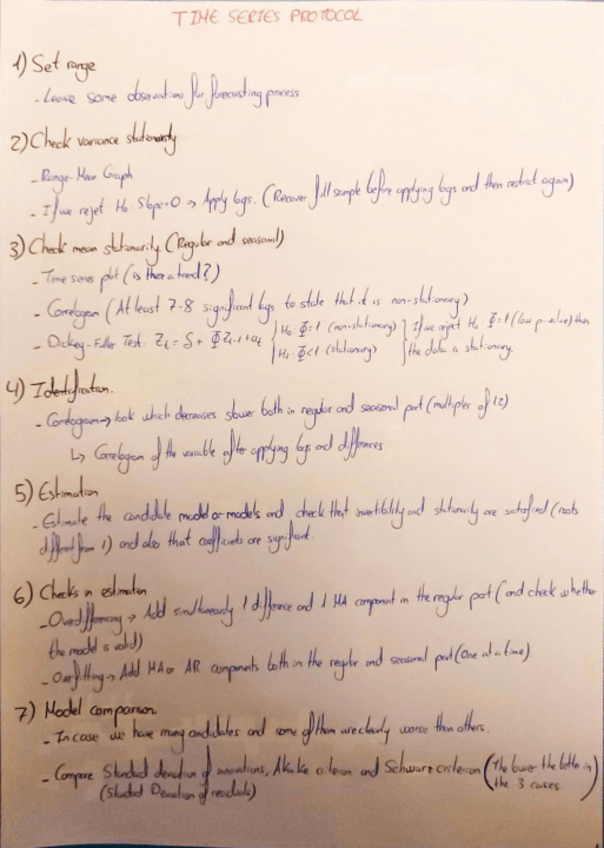 TIME SERIES PROTOCOL
1) Set range
- Leave some observations for forecasting process
2) Check variance stationarity
- Range-Mean Graph
- If we reject H₀: Slope=0 → Apply logs. (Recover full sample before applying logs and then restrict again)
3) Check mean stationarity (Regular and seasonal)
- Time series plot (is there a trend?)
- Correlogram (At least 7-8 significant lags to state that it is non-stationary)
- Dickey-Fuller Test: Zₜ = δ + ΦZₜ₋₁ + aₜ { H₀: Φ=1 (non-stationary) } If we reject H₀: Φ=1 (low p-value) then
H₁: Φ<1 (stationary) the data is stationary.
4) Identification.
- Correlogram → look which decreases slower both in regular and seasonal part (multiples of 12)
↳ Correlogram of the variable after applying logs and differences
5) Estimation
- Estimate the candidate model or models and check that invertibility and stationarity are satisfied (roots
different from 1) and also that coefficients are significant.
6) Checks in estimation
- Overdifferencing → Add simultaneously 1 difference and 1 MA component in the regular part (and check whether
the model is valid)
- Overfitting → Add MA or AR components both in the regular and seasonal part (One at a time).
7) Model comparison.
- In case we have many candidates and some of them are clearly worse than others.
- Compare Standard deviation of innovations, Akaike criterion and Schwarz criterion (The lower the better in
(Standard Deviation of residuals) the 3 cases)